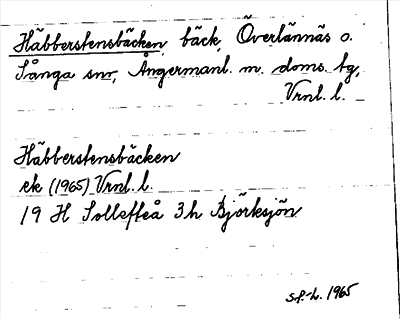 Häbberstensbäcken, bäck, Överlännäs o.
Sånga snr, Ångermanl. m. doms. tg,
Vrnl. l.
Häbberstensbäcken
ek (1965) Vrnl. l.
19 H Sollefteå 3h Björksjön
S.f.-L. 1965